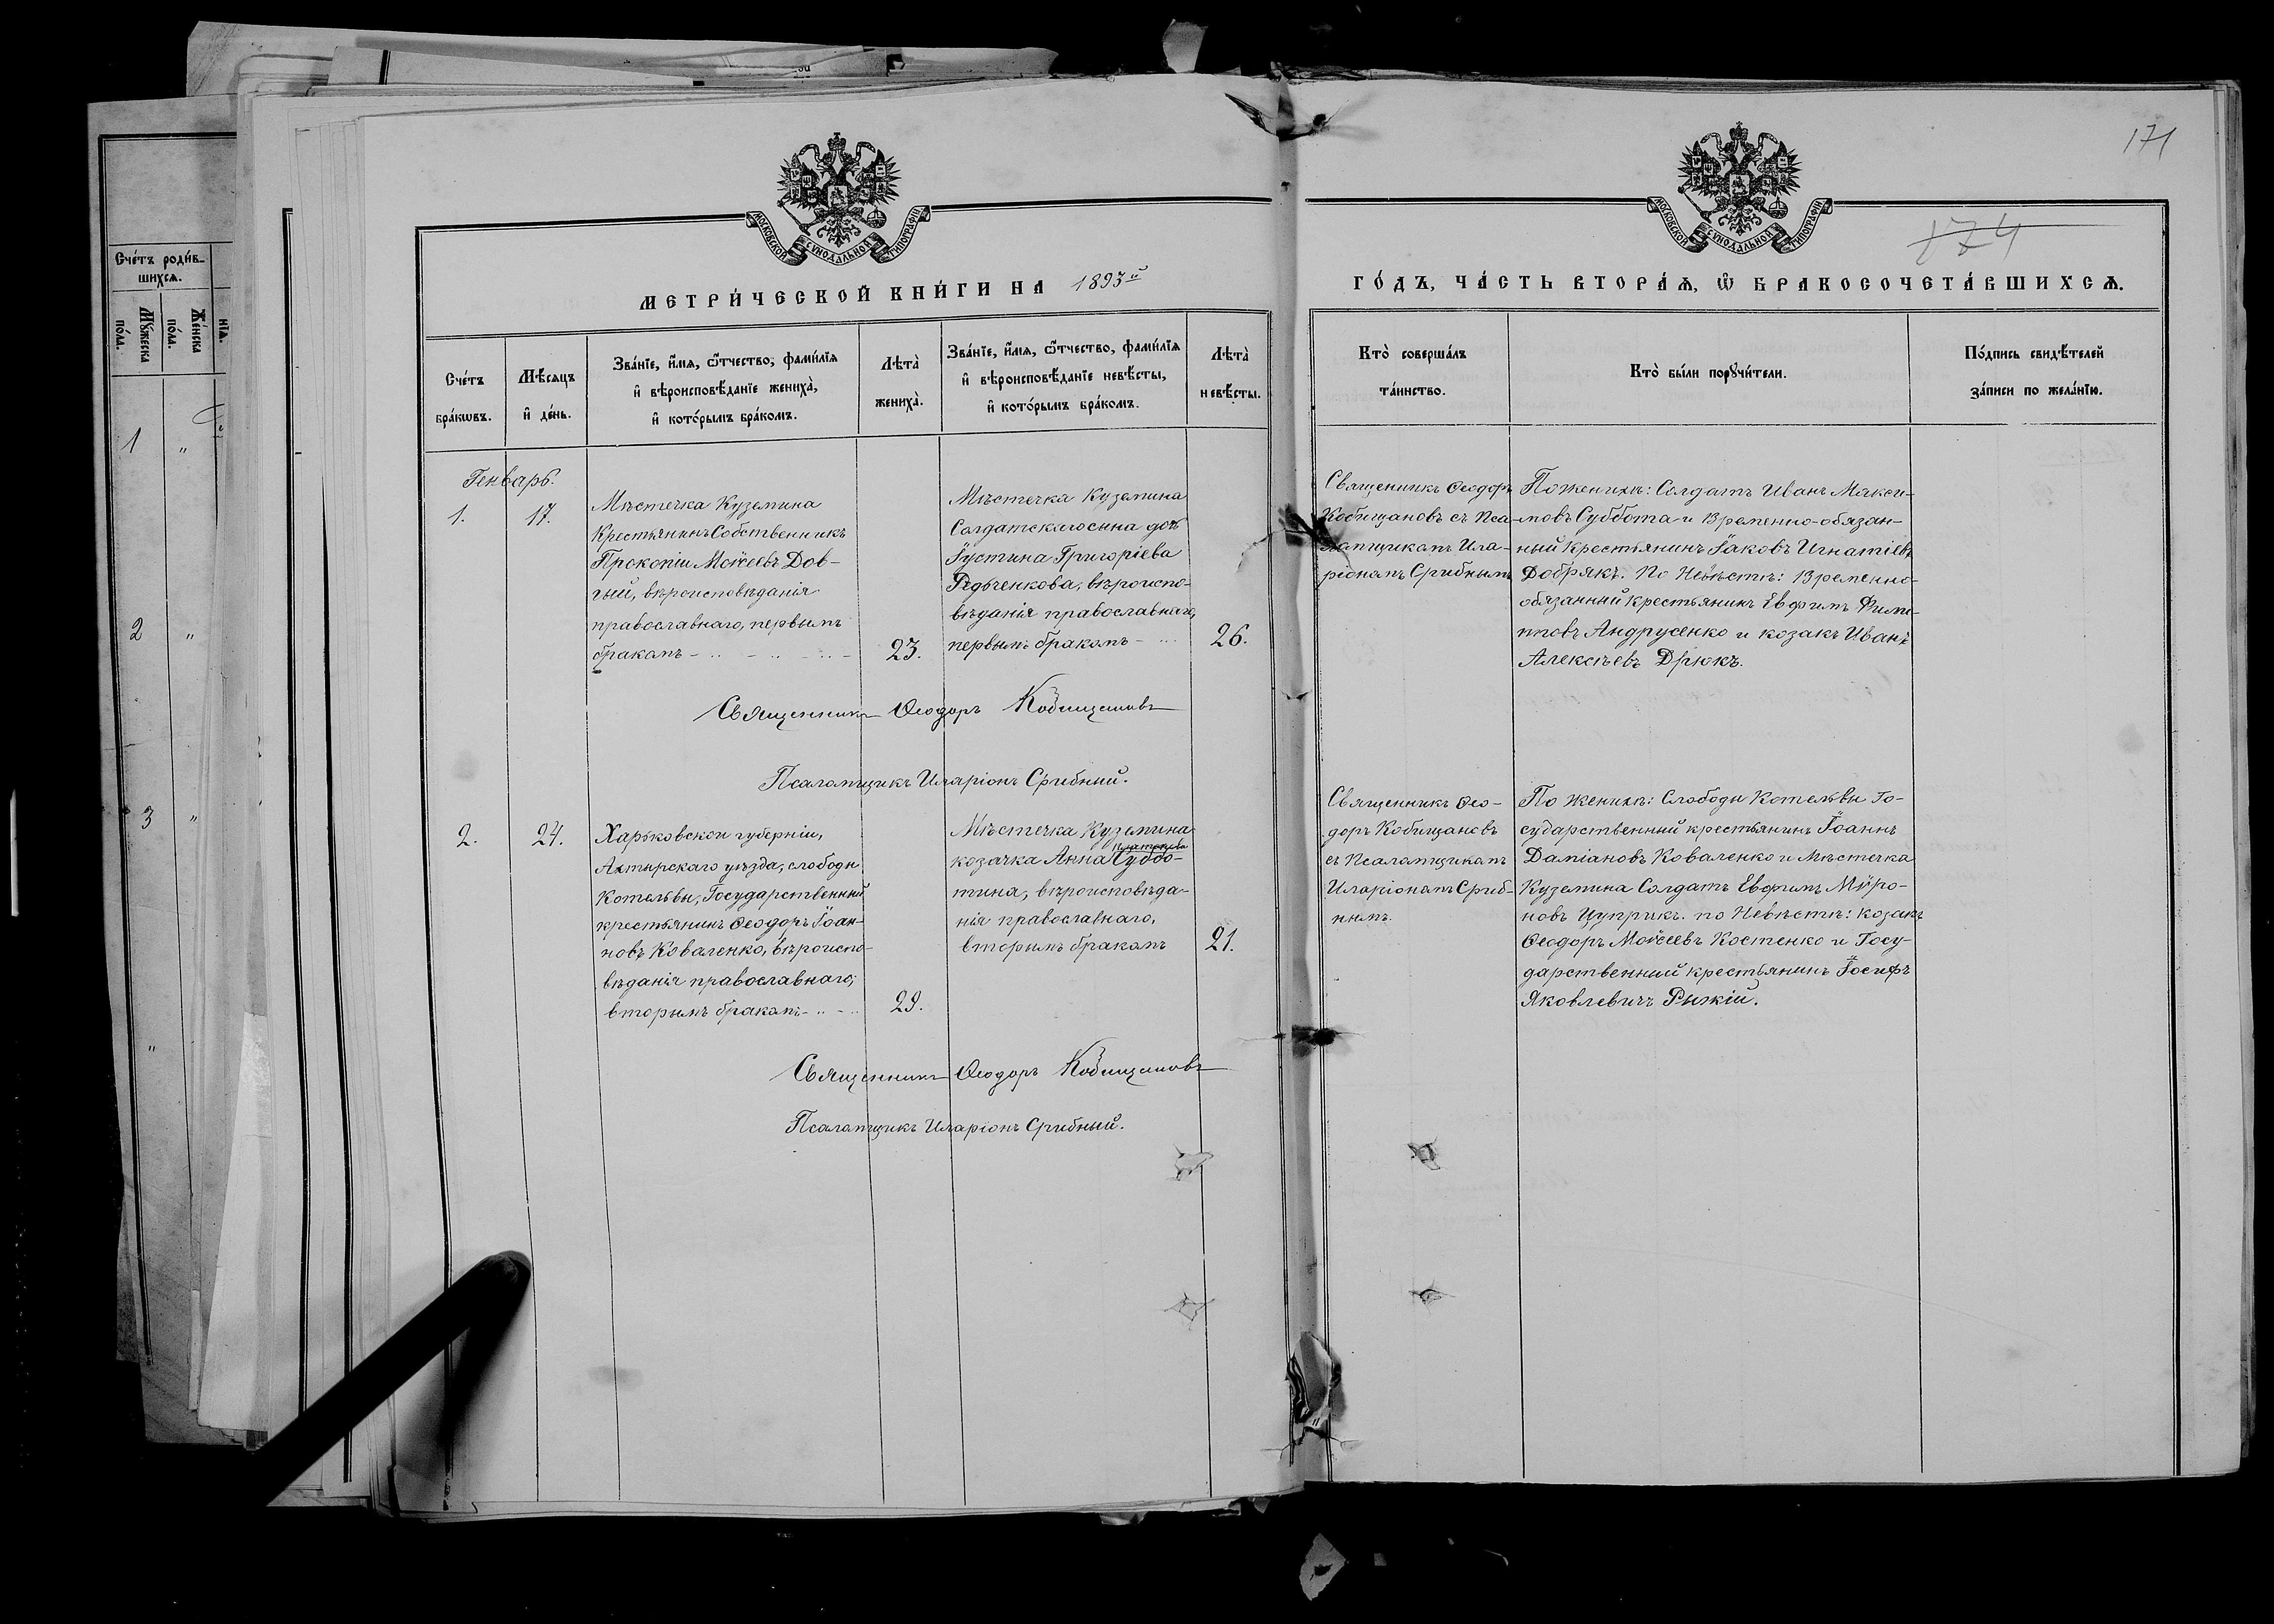 171
174
МОСКОВСКОЙ СУНОДАЛЬНОЙ ТИПОГРАФІИ
МОСКОВСКОЙ СУНОДАЛЬНОЙ ТИПОГРАФІИ
МЕТРИ́ЧЕСКОЙ КНИ́ГИ НА 1893й
ГО́ДЪ, ЧА́СТЬ ВТОРА́Ѧ, Ѿ БРАКОСОЧЕТА́ВШИХСѦ.
Сче́тъ роди́в-
шихсѧ.
Мꙋ́жеска
по́ла.
Же́нска
по́ла.
Сче́тъ
бра́кѡвъ.
Мѣ́сѧцъ
и҆ де́нь.
Зва́нїе, и҆́мѧ, ѻ҆́тчество, фами́лїѧ
и҆ вѣроисповѣ́данїе жениха̀,
и҆ кото́рымъ бра́комъ.
Лѣ́та̀
жениха̀.
Зва́нїе, и҆́мѧ, ѻ҆́тчество, фами́лїѧ
и҆ вѣроисповѣ́данїе невѣ́сты,
и҆ кото́рымъ бра́комъ.
Лѣ́та̀
невѣ́сты.
Кто̀ соверша́лъ
та́инство.
Кто̀ бы́ли порꙋчи́тели.
По́дпись свидѣ́телей
за́писи по жела́нїю.
1 "
2 "
3 "
"
Генварь.
1.
17.
Мѣстечка Куземина
Крестьянинъ Собственникъ
Прокопій Моѵсеевъ Дов-
гый, вѣроисповѣданія
православнаго, первымъ
бракомъ
23.
Мѣстечка Куземина
Солдатскаго сына дочь
Іустина Григоріева
Рѣдъченкова, вѣроиспо-
вѣданія православнаго,
первымъ бракомъ
26.
Священникъ Ѳеодоръ
Кобищановъ съ Пса-
ломщикомъ Ила-
ріономъ Срибнымъ
По женихѣ: Солдатъ Иванъ Макси-
мовъ Суббота и Временно-обязан-
ный крестьянинъ Іаковъ Игнатіевъ
Добрякъ. По Невѣстѣ: Временно-
обязанный крестьянинъ Евфимъ Филип-
повъ Андрусенко и козакъ Иванъ
Алексѣевъ Дрюкъ.
Священникъ Ѳеодоръ Кобищановъ
Псаломщикъ Иларіонъ Срибный.
2.
24.
Харьковской губерніи,
Ахтырскаго уѣзда, слободы
Котельвы, Государственный
крестьянинъ Ѳеодоръ Іоан-
новъ Коваленко, вѣроиспо-
вѣданія православнаго,
вторымъ бракомъ
29.
Мѣстечка Куземина
Платонова
козачка Анна Суббо-
тина, вѣроисповѣда-
нія православнаго,
вторымъ бракомъ
21.
Священникъ Ѳео-
доръ Кобищановъ
съ Псаломщикомъ
Иларіономъ Сриб-
нымъ.
По Женихѣ: Слободы Котельвы Го-
сударственный крестьянинъ Іоаннъ
Даміановъ Коваленко и Мѣстечка
Куземина Солдатъ Евфимъ Мѵро-
новъ Цуприкъ. по Невѣстѣ: козакъ
Ѳеодоръ Моѵсеевъ Костенко и Госу-
дарственный крестьянинъ Іосифъ
Яковлевичъ Рыжій.
Священникъ Ѳеодоръ Кобищановъ
Псаломщикъ Иларіонъ Срибный.